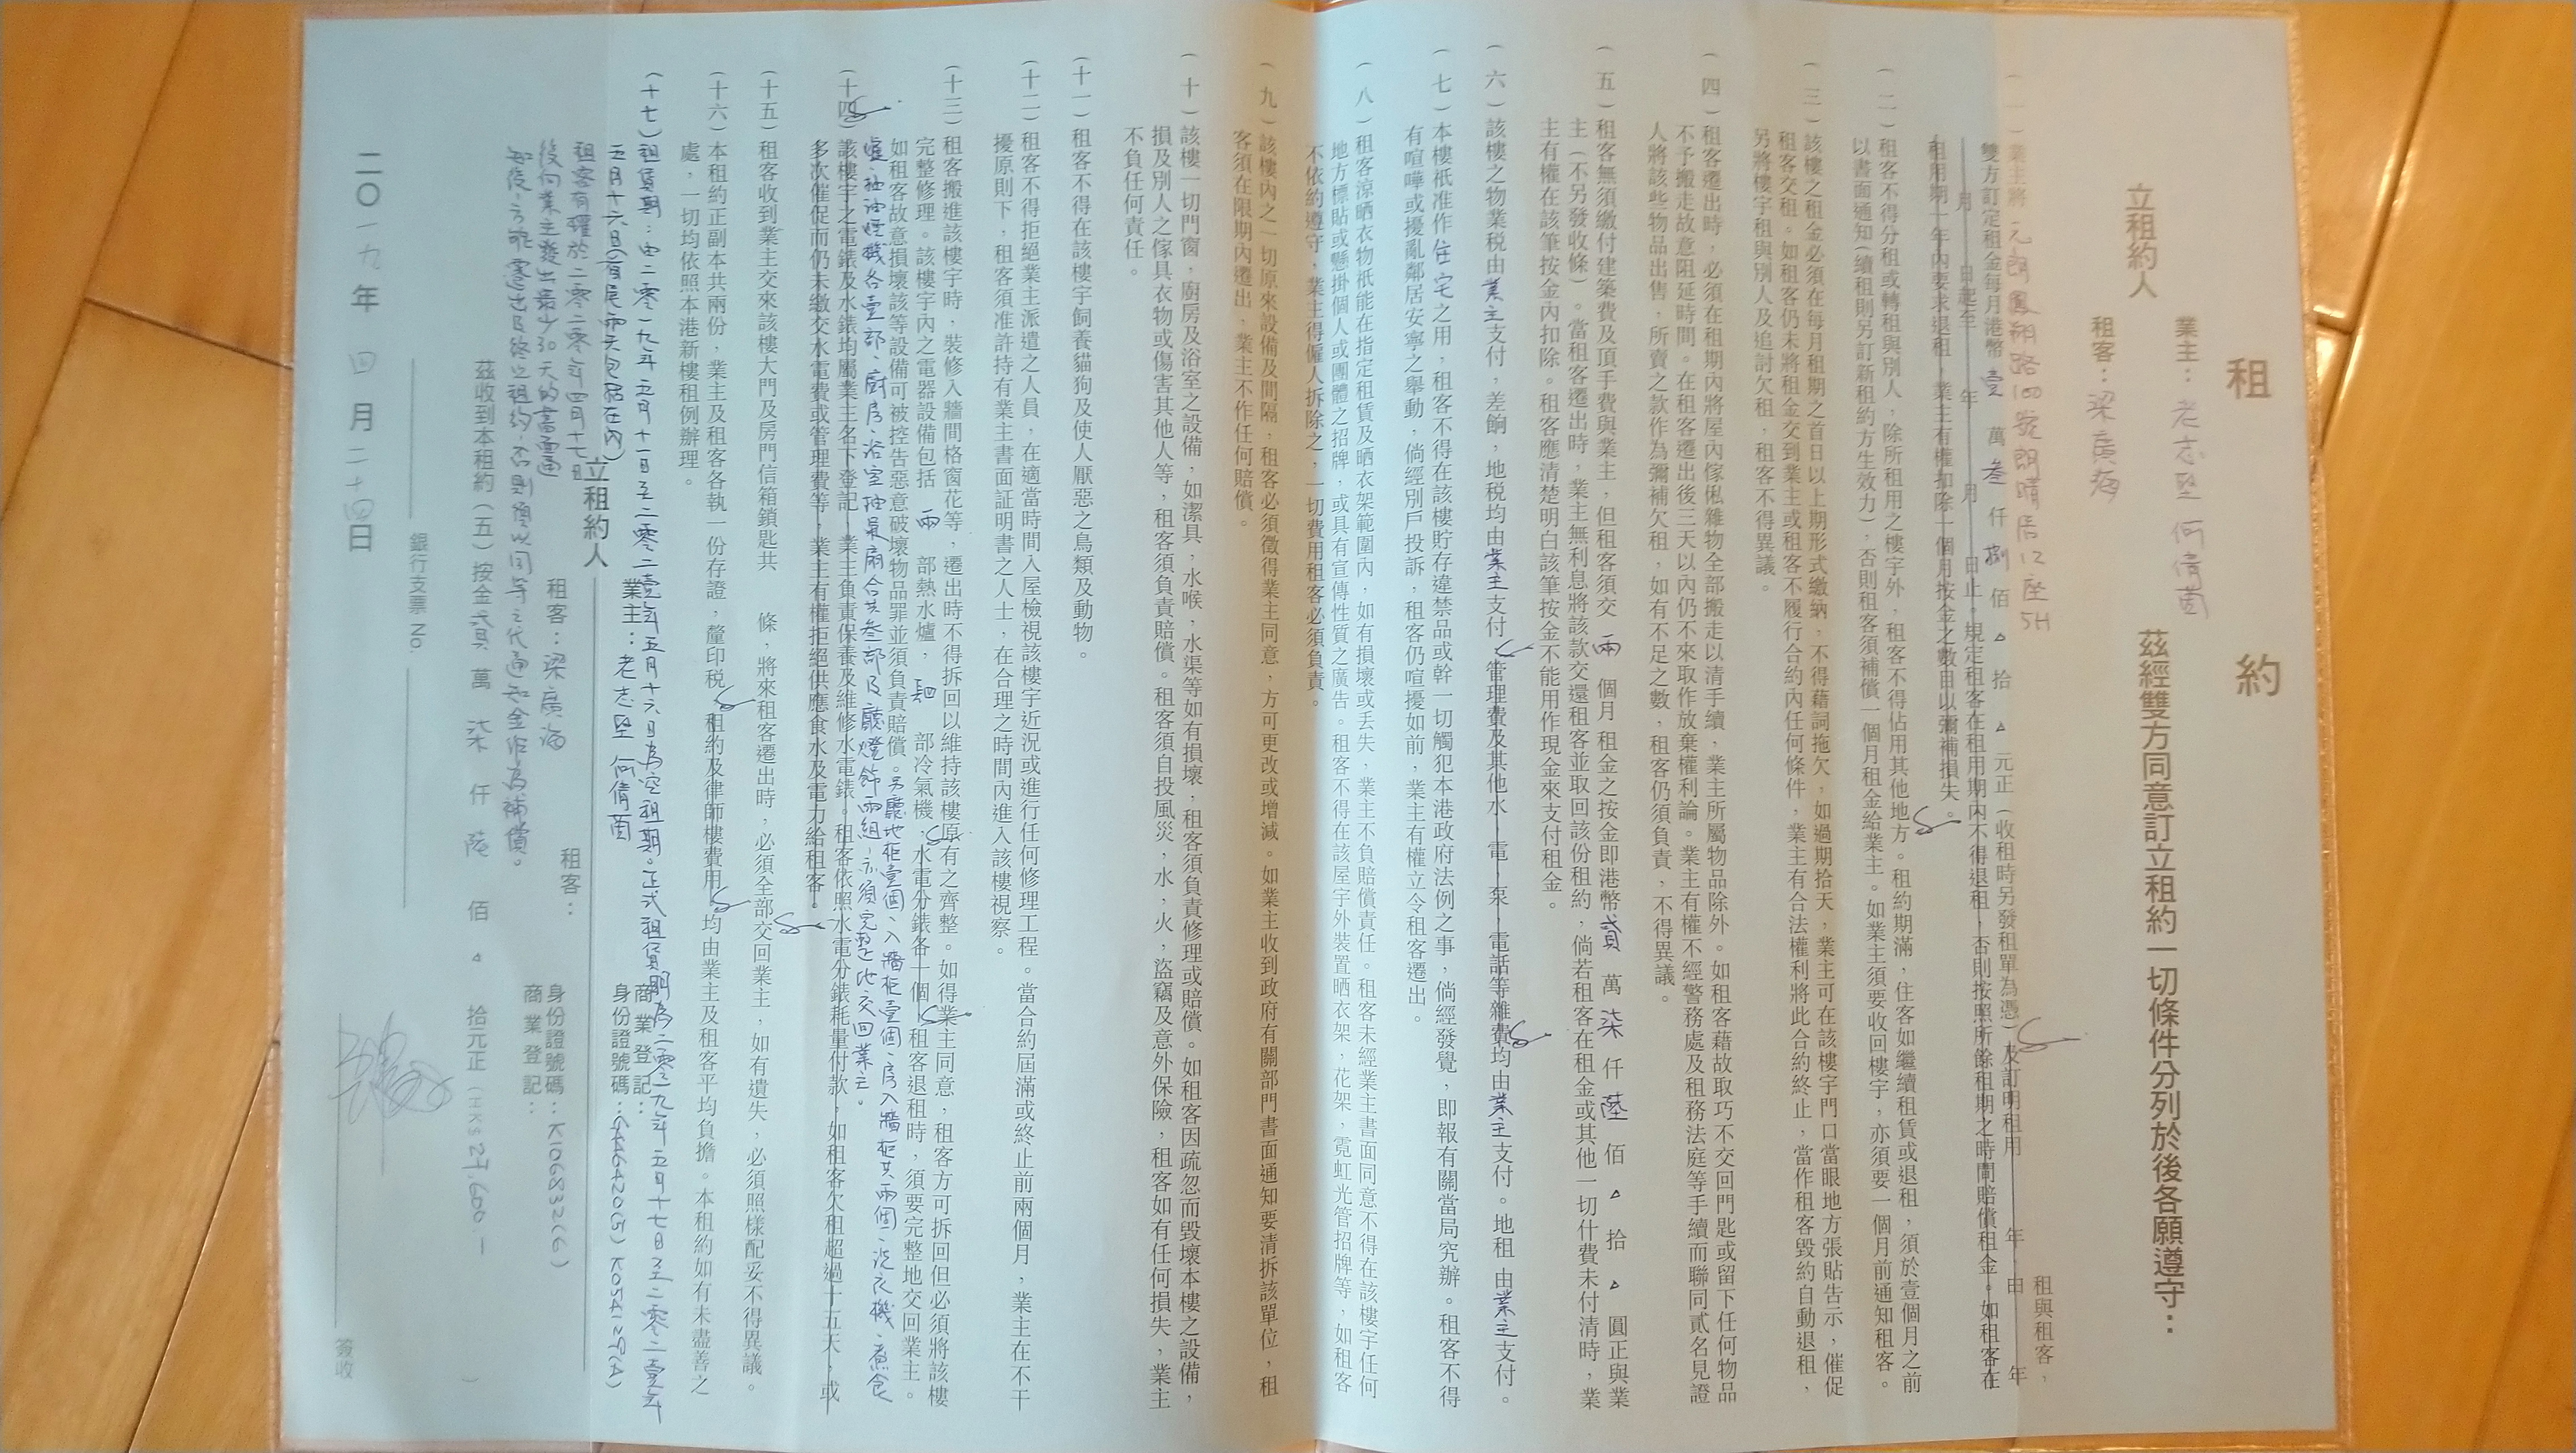 租 約
立租約人
業主：老志堅 何倩茵
租客：梁廣海
茲經雙方同意訂立租約一切條件分列於後各願遵守：
（一）業主將元朗鳳翔路100號朗晴居12座5H 租與租客，
雙方訂定租金每月港幣 壹 萬 叁 仟 捌 佰 △ 拾 △ 元正（收租時另發租單為憑）及訂明租用 年 由 年
月 日起至 年 月 日止。規定租客在租用期內不得退租，否則按照所餘租期之時間賠償租金。如租客在
租用期一年內要求退租，業主有權扣除一個月按金之數目以彌補損失。
（二）租客不得分租或轉租與別人，除所租用之樓宇外，租客不得佔用其他地方。租約期滿，住客如繼續租賃或退租，須於壹個月之前
以書面通知（續租則另訂新租約方生效力），否則租客須補償一個月租金給業主。如業主須要收回樓宇，亦須要一個月前通知租客。
（三）該樓之租金必須在每月租期之首日以上期形式繳納，不得藉詞拖欠，如過期拾天，業主可在該樓宇門口當眼地方張貼告示，催促
租客交租。如租客仍未將租金交到業主或租客不履行合約內任何條件，業主有合法權利將此合約終止，當作租客毀約自動退租，
另將樓宇租與別人及追討欠租，租客不得異議。
（四）租客遷出時，必須在租期內將屋內傢俬雜物全部搬走以清手續，業主所屬物品除外。如租客藉故取巧不交回門匙或留下任何物品
不予搬走故意阻延時間。在租客遷出後三天以內仍不來取作放棄權利論。業主有權不經警務處及租務法庭等手續而聯同貳名見證
人將該些物品出售，所賣之款作為彌補欠租，如有不足之數，租客仍須負責，不得異議。
（五）租客無須繳付建築費及頂手費與業主，但租客須交 兩 個月租金之按金即港幣 貳 萬 柒 仟 陸 佰 △ 拾 △ 圓正與業
主（不另發收條）。當租客遷出時，業主無利息將該款交還租客並取回該份租約，倘若租客在租金或其他一切什費未付清時，業
主有權在該筆按金內扣除。租客應清楚明白該筆按金不能用作現金來支付租金。
（六）該樓之物業税由業主支付，差餉，地税均由業主支付，管理費及其他水，電，泵，電話等雜費均由業主支付。地租 由業主支付。
（七）本樓祇准作住宅之用，租客不得在該樓貯存違禁品或幹一切觸犯本港政府法例之事，倘經發覺，即報有關當局究辦。租客不得
有喧嘩或擾亂鄰居安寧之舉動，倘經別戶投訴，租客仍喧擾如前，業主有權立令租客遷出。
（八）租客涼晒衣物祇能在指定租賃及晒衣架範圍內，如有損壞或丟失，業主不負賠償責任。租客未經業主書面同意不得在該樓宇任何
地方標貼或懸掛個人或團體之招牌，或具有宣傳性質之廣告。租客不得在該屋宇外裝置晒衣架，花架，霓虹光管招牌等，如租客
不依約遵守，業主得僱人拆除之，一切費用租客必須負責。
（九）該樓內之一切原來設備及間隔，租客必須徵得業主同意，方可更改或增減。如業主收到政府有關部門書面通知要清拆該單位，租
客須在限期內遷出，業主不作任何賠償。
（十）該樓一切門窗，廚房及浴室之設備，如潔具，水喉，水渠等如有損壞，租客須負責修理或賠償。如租客因疏忽而毀壞本樓之設備，
損及別人之傢具衣物或傷害其他人等，租客須負責賠償。租客須自投風災，水，火，盜竊及意外保險，租客如有任何損失，業主
不負任何責任。
（十一）租客不得在該樓宇飼養貓狗及使人厭惡之鳥類及動物。
（十二）租客不得拒絕業主派遣之人員，在適當時間入屋檢視該樓宇近況或進行任何修理工程。當合約屆滿或終止前兩個月，業主在不干
擾原則下，租客須准許持有業主書面証明書之人士，在合理之時間內進入該樓視察。
（十三）租客搬進該樓宇時，裝修入牆間格窗花等，遷出時不得拆回以維持該樓原有之齊整。如得業主同意，租客方可拆回但必須將該樓
完整修理。該樓宇內之電器設備包括 兩 部熱水爐， 部冷氣機，水電分錶各一個，租客退租時，須要完整地交回業主。
如租客故意損壞該等設備可被控告惡意破壞物品罪並須負責賠償。另廳地柜壹個、入牆柜壹個、房入牆柜共兩個、洗衣機、煮食
爐、抽油煙機各壹部、廚房、浴室抽氣扇合共叁部及廳燈飾兩組，亦須完整地交回業主。
（十四）該樓宇之電錶及水錶均屬業主名下登記，業主負責保養及維修水電錶。租客依照水電分錶耗量付款，如租客欠租超過十五天，或
多次催促而仍未繳交水電費或管理費等，業主有權拒絕供應食水及電力給租客。
（十五）租客收到業主交來該樓大門及房門信箱鎖匙共 條，將來租客遷出時，必須全部交回業主，如有遺失，必須照樣配妥不得異議。
（十六）本租約正副本共兩份，業主及租客各執一份存證，釐印税，租約及律師樓費用，均由業主及租客平均負擔。本租約如有未盡善之
處，一切均依照本港新樓租例辦理。
（十七）租賃期：由二零一九年五月十一日至二零二壹年五月十六日為空租期。正式租賃期為二零一九年五月十七日至二零二壹年
五月十六日（首尾兩天包括在內）
租客有權於二零二零年四月十七日
後向業主發出最少30天的書面通
知後，方能遷出及終止租約，否則須以同等之代通知金作為補償。
立租約人
業主：老志堅 何倩茵
商業登記：
身份證號碼：G446420(5) K054129(A)
租客：梁廣海
租客：
身份證號碼：K106832(6)
商業登記：
茲收到本租約（五）按金 貳 萬 柒 仟 陸 佰 △ 拾元正（HK$27,600.— ）
銀行支票 No.
簽收
二〇一九年 四 月 二十四日